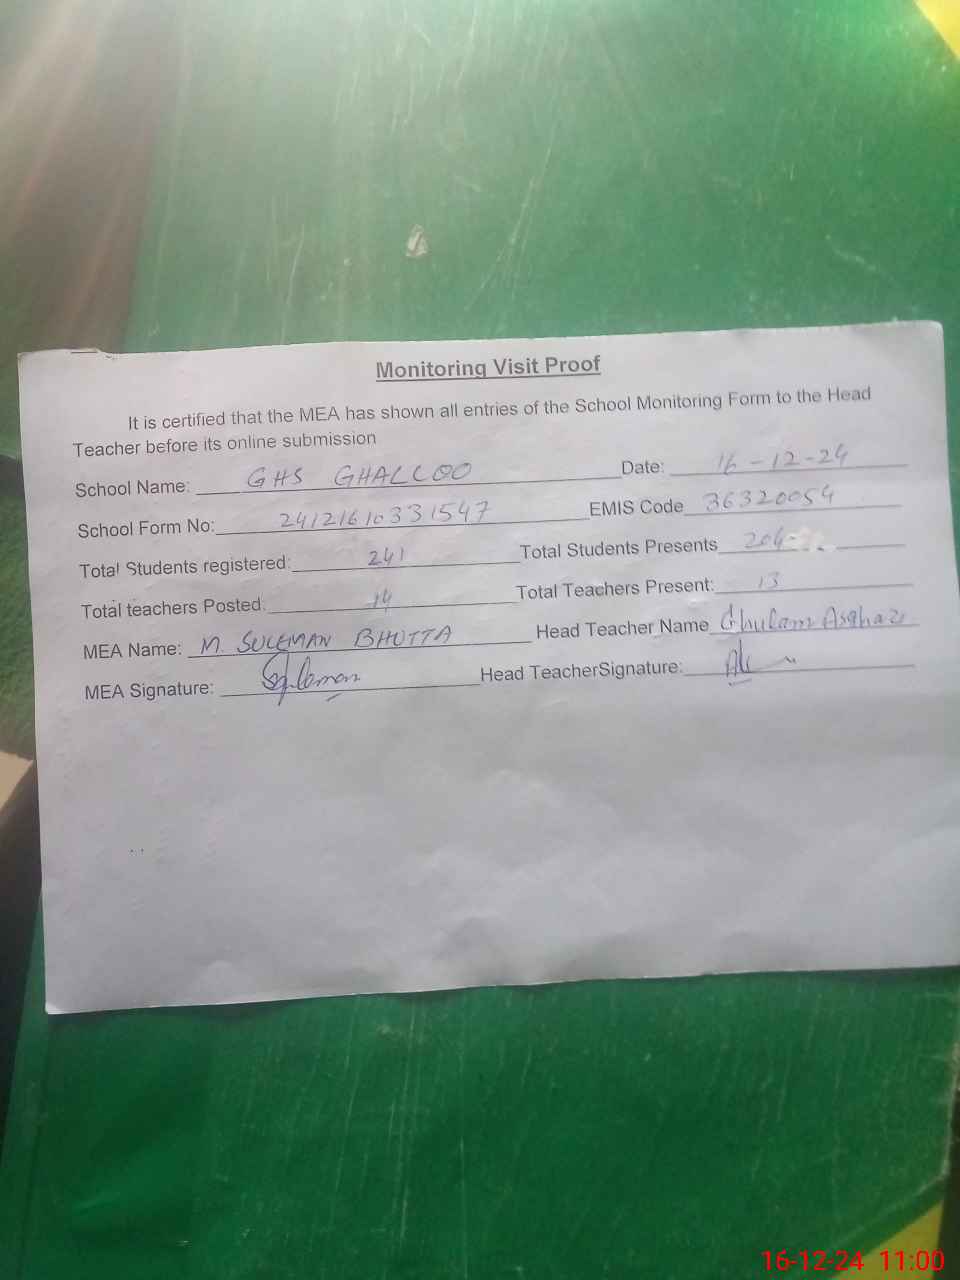 Monitoring Visit Proof
It is certified that the MEA has shown all entries of the School Monitoring Form to the Head
Teacher before its online submission
School Name: GHS GHALLOO Date: 16-12-24
School Form No: 24121610331547 EMIS Code 36320054
Total Students registered: 241 Total Students Presents 204
Total teachers Posted: 14 Total Teachers Present: 13
MEA Name: M. SULEMAN BHUTTA Head Teacher Name Ghulam Asghar
MEA Signature: Suleman Head TeacherSignature:
16-12-24 11:00